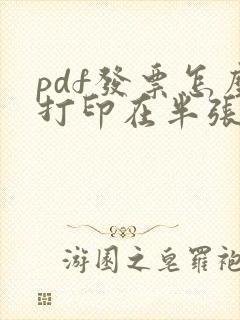 pdf發票怎麼
打印在半張
游園之皂羅袍